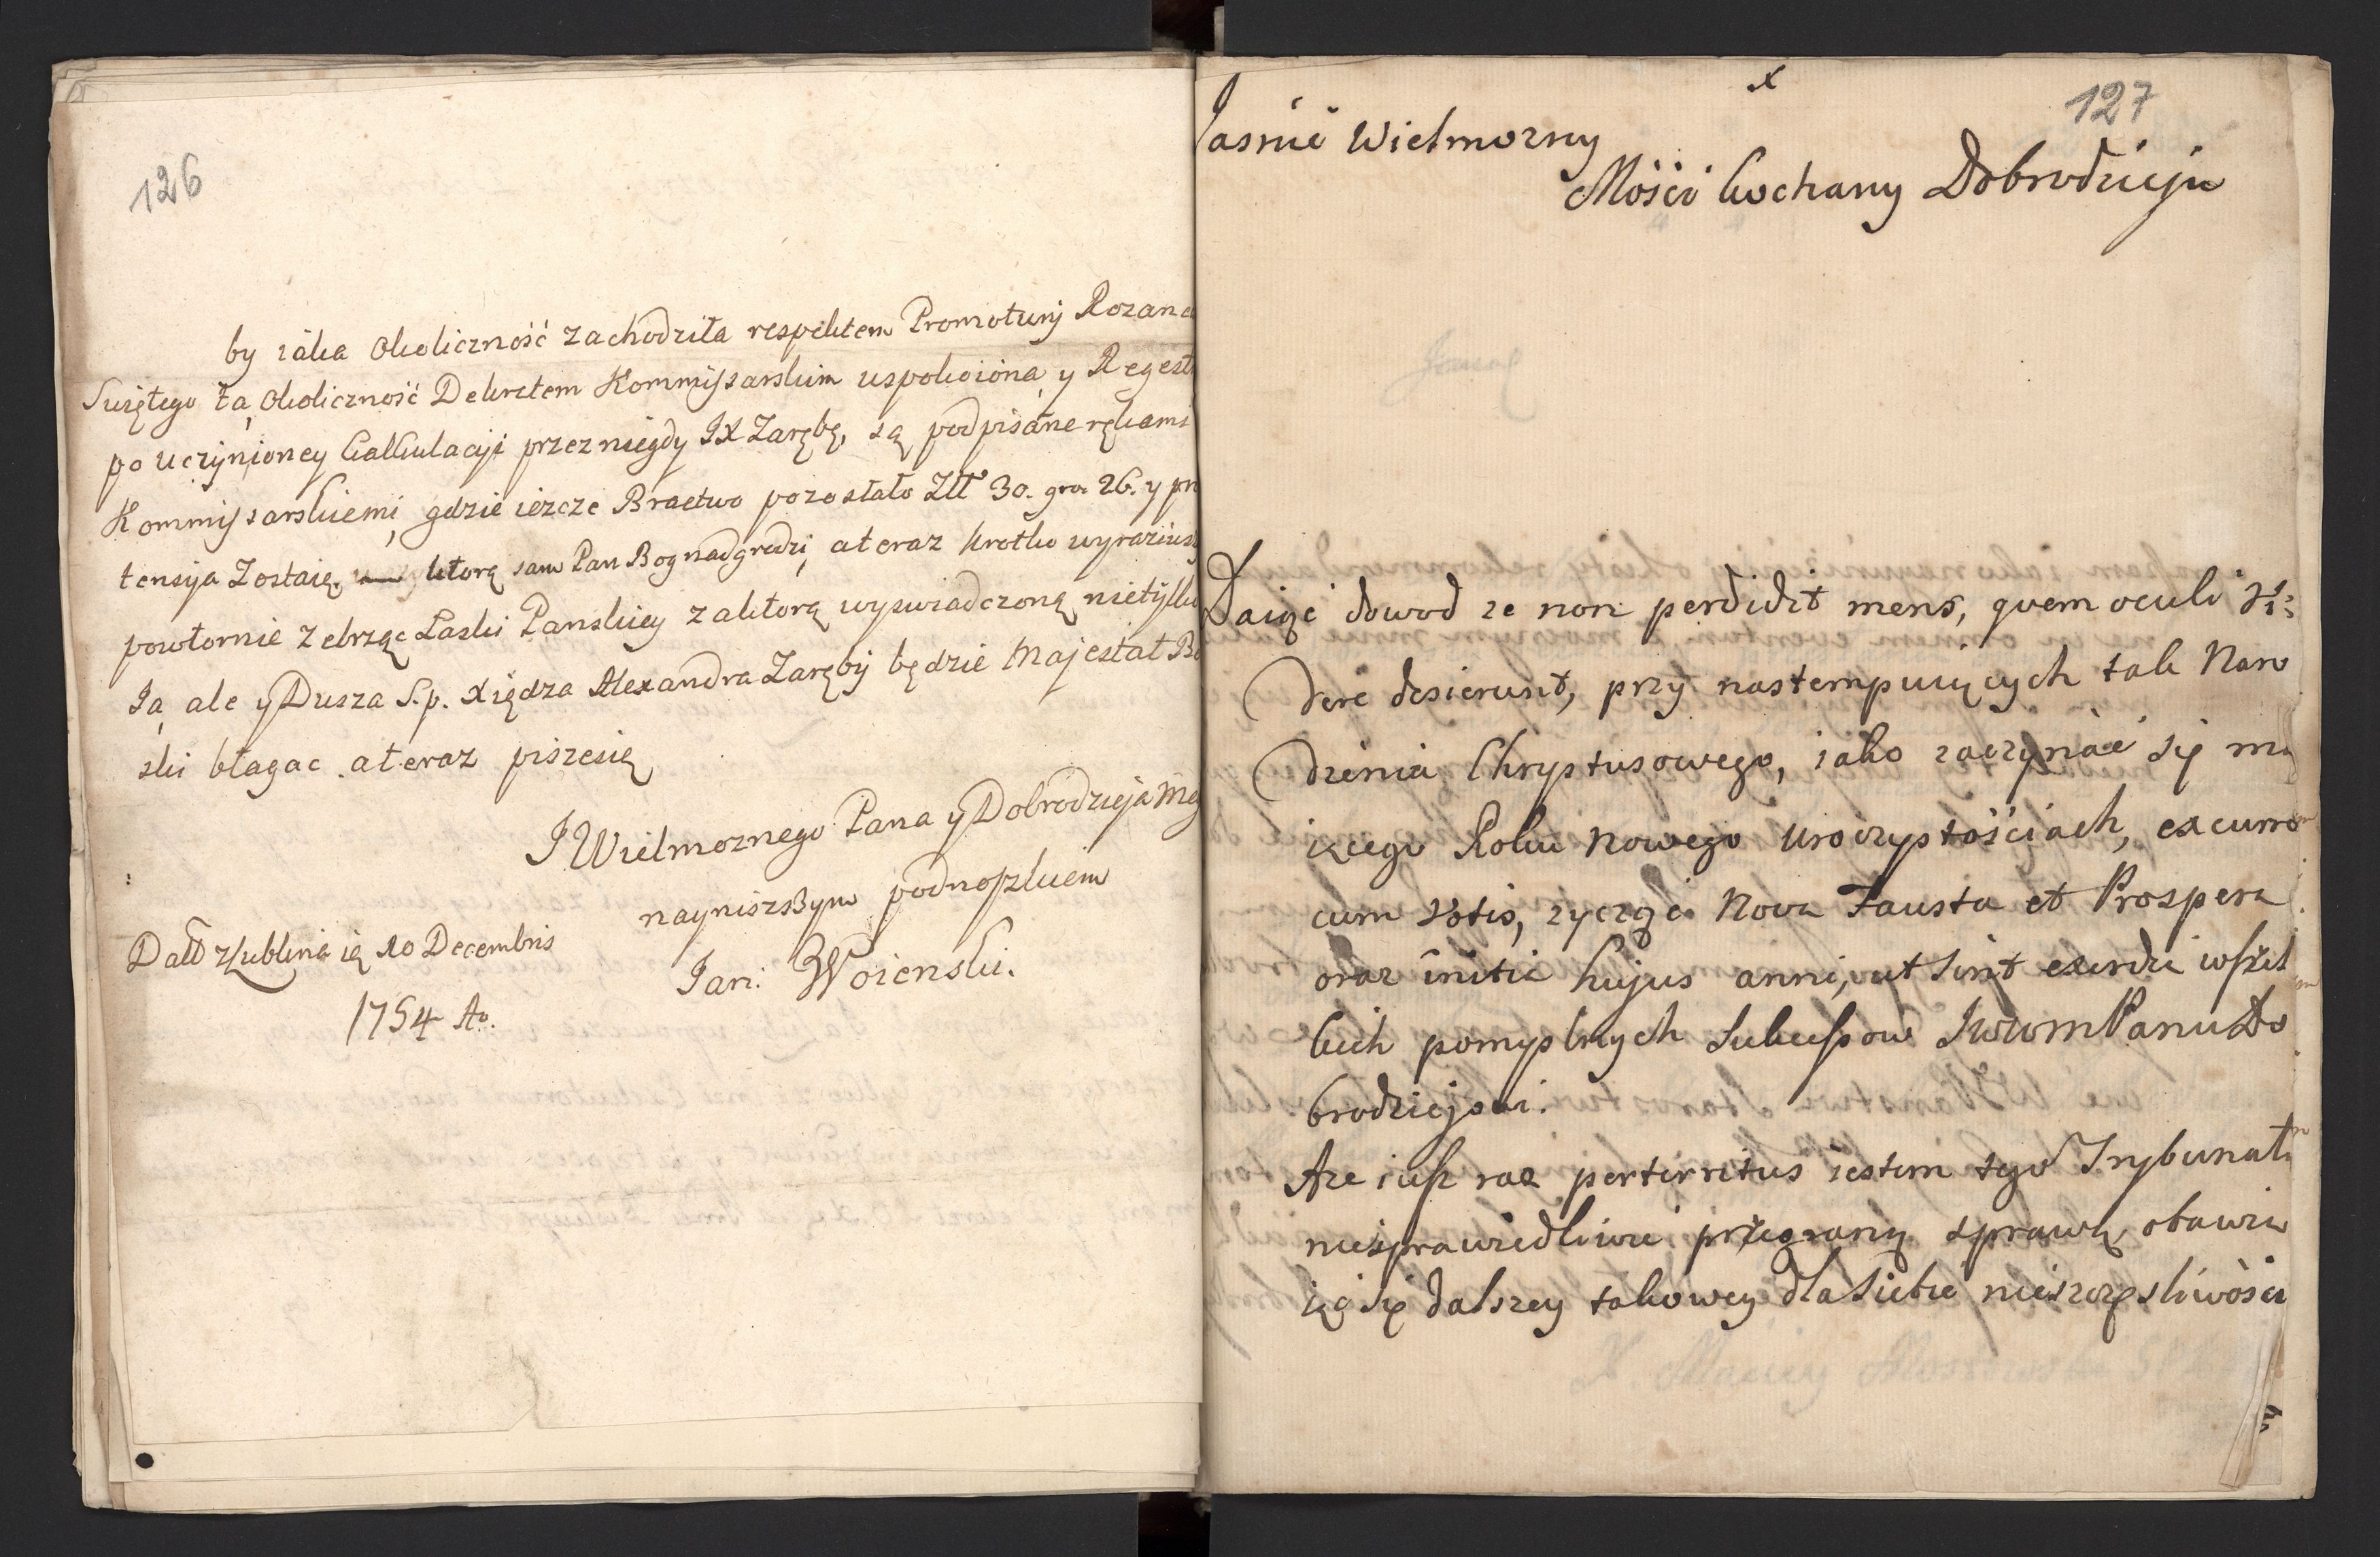 126
by iaka Okoliczność zachodziła respektem Promotury Rozanca
Swiętego ta Okoliczność Dekretem Kommissarskim uspokoiona y Regest
po uczynioney Kalkulacyi przez niegdy JX Zarębę, są podpisane rękami
Kommissarskiemi, gdzie iezcze Bractwo pozostało Złł 30. gro. 26. y pre
tensya Zostaie, ktorą sam Pan Bog nadgrodzi, a teraz krotko wyraziws
powtornie zebrząc Laski Panskiey za ktorą wyswiadczoną nietylko
Ja, ale y Dusza S.p. Xiędza Alexandra Zaręby będzie Majestat Bo
ski błagac. a teraz piszesię
J Wielmoznego Pana y Dobrodzieja Meg
nayniszszym podnoszkiem
Jan: Woienski.
Datt z Lublina ią 10 Decembris
1754 Ao.
x
127
Jasnie Wielmozny
Mości Kochany Dobrodzieju
Daiąc dowod ze non perdidit mens, quem oculi Vi:
dere desierunt, przy nastempuiących tak Naro
dzenia Chrystusowego, iako zaczynać się ma
iącego Roku Nowego Uroczystościach, excurro
cum Votis, zycząc Nova Fausta et Prospera
oraz initia hujus anni, ut sint exordia wszel
kich pomyslnych sukcessow JWWM Panu Do
brodziejowi.
Aze iusz raz perterritus iestem tego Trybunału
niesprawiedliwie przegraną sprawą, obawia
iąc się dalszey takowey dla siebie nieszczęsliwości